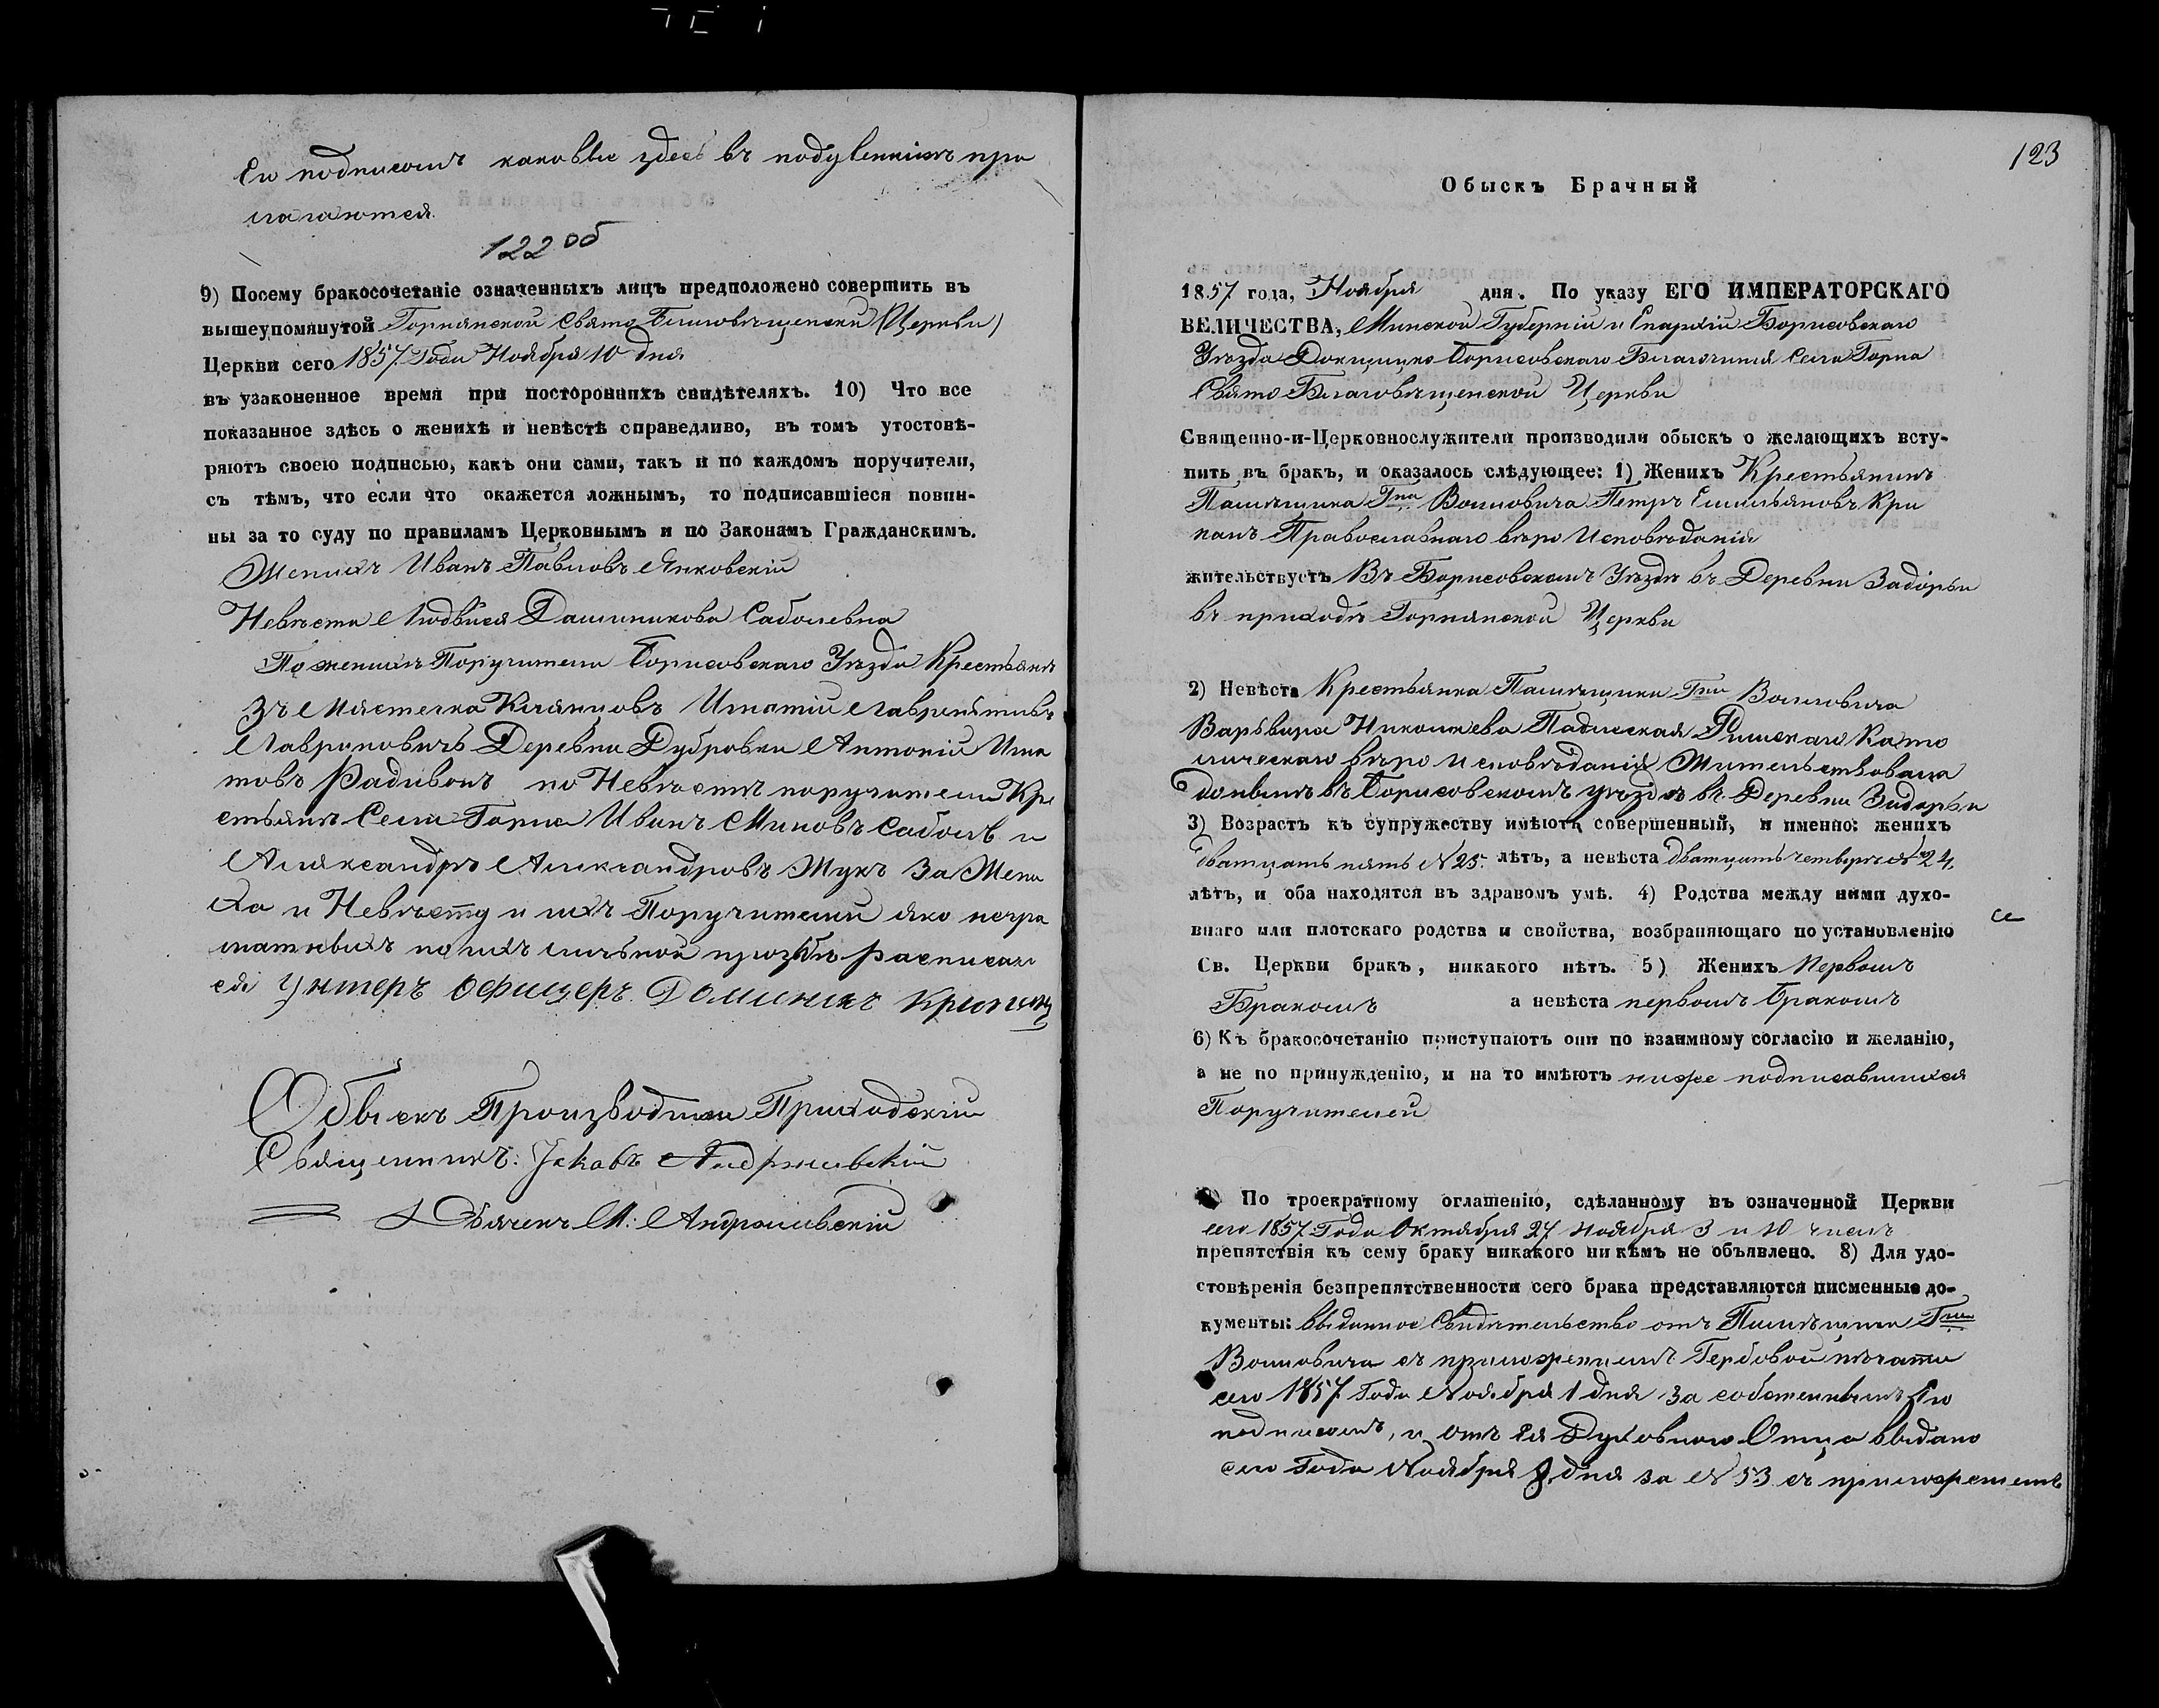 Его подписомъ каковые здесь въ подленнікъ при
лагаются.
122 об
9) Посему бракосочетаніе означенныхъ лицъ предположено совершить въ
вышеупомянутой Горнянской Свято Благовѣщенской (Церкви)
Церкви сего 1857. Года Ноября 10 дня
въ узаконенное время при постороннихъ свидѣтеляхъ. 10) Что все
показанное здѣсь о женихѣ и невѣстѣ справедливо, въ томъ утостовѣ-
ряютъ своею подписью, какъ они сами, такъ и по каждомъ поручители,
съ тѣмъ, что если что окажется ложнымъ, то подписавшіеся повин-
ны за то суду по правиламъ Церковнымъ и по Законамъ Гражданскимъ.
Женихъ Иванъ Павловъ Янковскій
Невѣста Людвися Доминикова Саболевна
По женихѣ Поручители Борисовскаго Уѣзда Крестьянъ
зъ Мястечка Игнатій Лаврентіевъ
Лавриновичъ Деревни Дубровки Антоній Игна
товъ Радивонъ по Невѣстѣ поручители Кре
стьянъ Села Горна Иванъ Миновъ Саболь и
Аляксандръ Александровъ Жукъ За Жени
ха и Невѣсту и ихъ Поручителей яко негра
матныхъ по ихъ личъной прозбѣ расписалъ
ся Унтеръ Офицеръ Доминикъ
Обыскъ Производили Приходскій
Священникъ: Іаковъ Андржиевскій
Дьячекъ М: Андржиевскій
123
Обыскъ Брачный
1857 года, Ноября дня. По указу ЕГО ИМПЕРАТОРСКАГО
ВЕЛИЧЕСТВА, Минской Губерніи и Епархіи Борисовскаго
Уѣзда Докшицко Борисовскаго Благочинія Села Горна
Свято Благовѣщенской Церкви
Священно-и-Церковнослужители производили обыскъ о желающихъ всту-
пить въ бракъ, и оказалось слѣдующее: 1) Женихъ Крестьянинъ
Памѣщика Гна Воиновича Петръ Емильяновъ Кри
Православнаго вѣро Исповѣданія
жительствуетъ Въ Борисовскомъ Уѣздѣ въ Деревни Задорьи
въ приходѣ Горнянской Церкви
2) Невѣста Крестьянка Памѣщика Гна Воиновича
Варъвара Николаева Римскаго Като
лическаго вѣро Исповѣданія Жительствовала
донынѣ въ Борисовскомъ уѣздѣ въ Деревни Задорьи
3) Возрастъ къ супружеству имѣютъ совершенный, и именно: женихъ
дватцать пять N 25. лѣтъ, а невѣста дватцать четыре N 24.
лѣтъ, и оба находятся въ здравомъ умѣ. 4) Родства между ними духо-
внаго или плотскаго родства и свойства, возбраняющаго по установленію
Св. Церкви бракъ, никакого нѣтъ. 5) Женихъ Первомъ
Бракомъ а невѣста первомъ бракомъ
6) Къ бракосочетанію приступаютъ они по взаимному согласію и желанію,
а не по принужденію, и на то имѣютъ ниже подписавшихся
Поручителей
По троекратному оглашенію, сдѣланному въ означенной Церкви
сего 1857. Года Октября 27 Ноября 3 и 10 числъ
препятствія къ сему браку никакого ни кѣмъ не объявлено. 8) Для удо-
стовѣренія безпрепятственности сего брака представляются писменные до-
кументы: выданное Свидѣтельство отъ Памѣщика Гна
Воиновича съ приложеніемъ Гербовой печати
сего 1857 Года Ноября 1 дня за собственнымъ Его
подписомъ, и отъ Ея Духовнаго Отца выдано
сего Года Ноября 8 дня за N 53 съ приложеніемъ